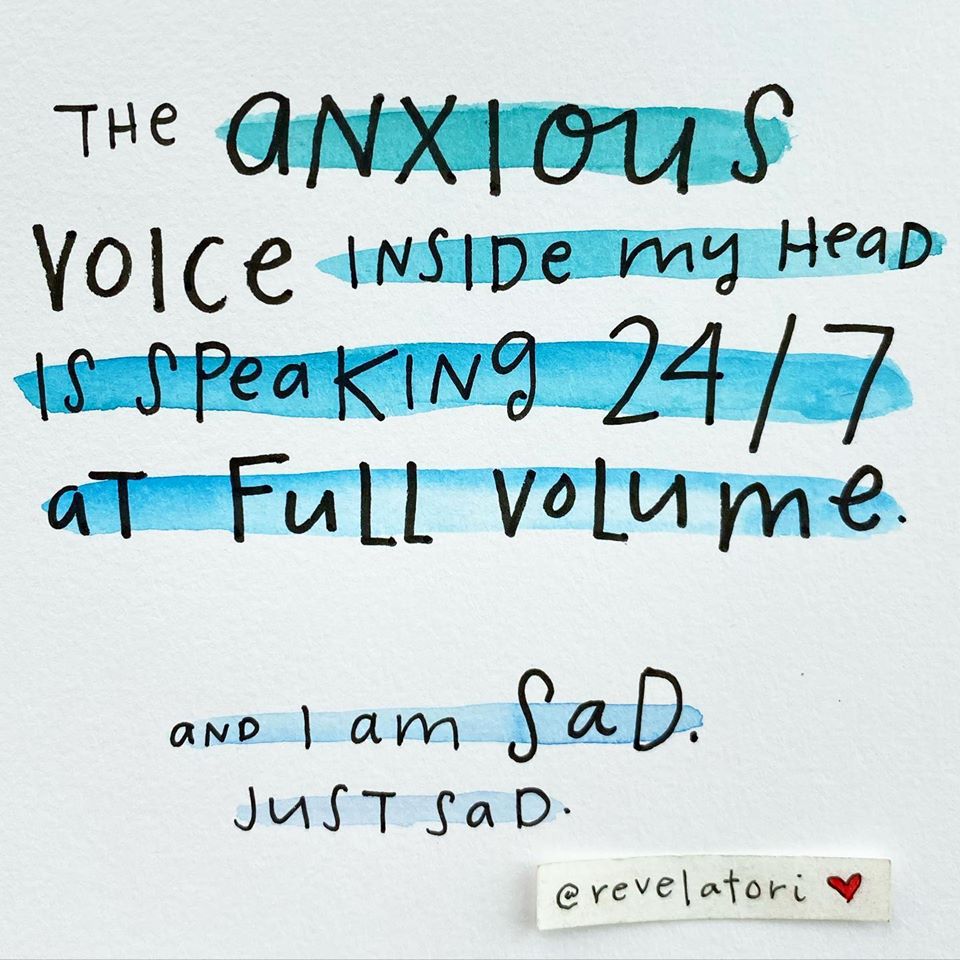 THE ANXIOUS
VOICE INSIDE my HEAD
IS SPEAKING 24/7
AT FULL VOLUME.
AND I am SAD.
JUST SAD.
@revelatori ❤